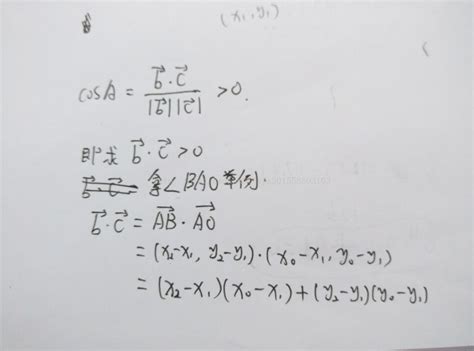 (x₁, y₁)
cosA = b⃗·c⃗ / |b⃗||c⃗| >0.
即求 b⃗·c⃗ >0
拿∠BAO举例.
b⃗·c⃗ = AB⃗·AO⃗
= (x₂-x₁, y₂-y₁)·(x₀-x₁, y₀-y₁)
= (x₂-x₁)(x₀-x₁)+(y₂-y₁)(y₀-y₁)